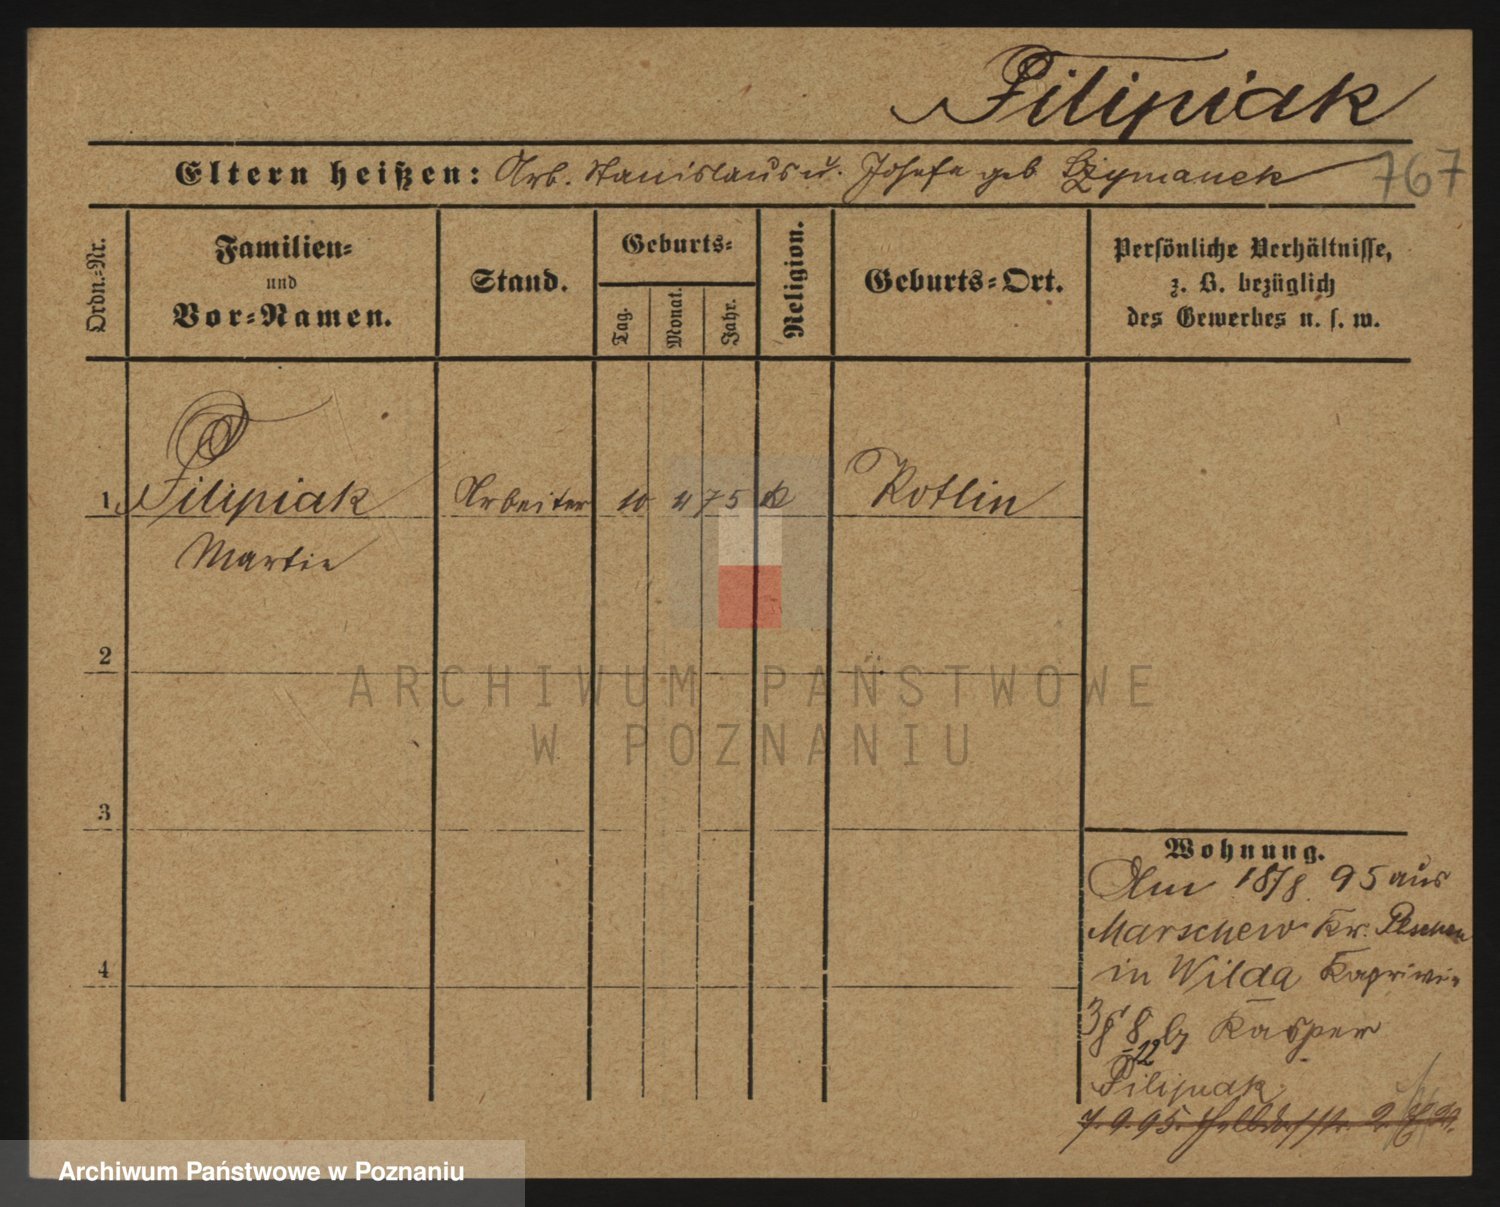 Filipiak
Eltern heißen: Arb. Stanislaus u. Josefa geb Szymanek 767
Ordn.-Nr.
Familien-
und
Vor-Namen.
Stand.
Geburts-
Tag.
Monat.
Jahr.
Religion.
Geburts-Ort.
Persönliche Verhältnisse,
z. B. bezüglich
des Gewerbes u. s. w.
1 Filipiak Arbeiter 10 11 75 k Kotlin
Martin
2
3
4
Wohnung.
Am 18/8. 95 aus
Marschew Kr. Pleschen
in Wilda
8 Kasper
12
Filipiak
7. 9. 95. 2.
ARCHIWUM PAŃSTWOWE
W POZNANIU
Archiwum Państwowe w Poznaniu